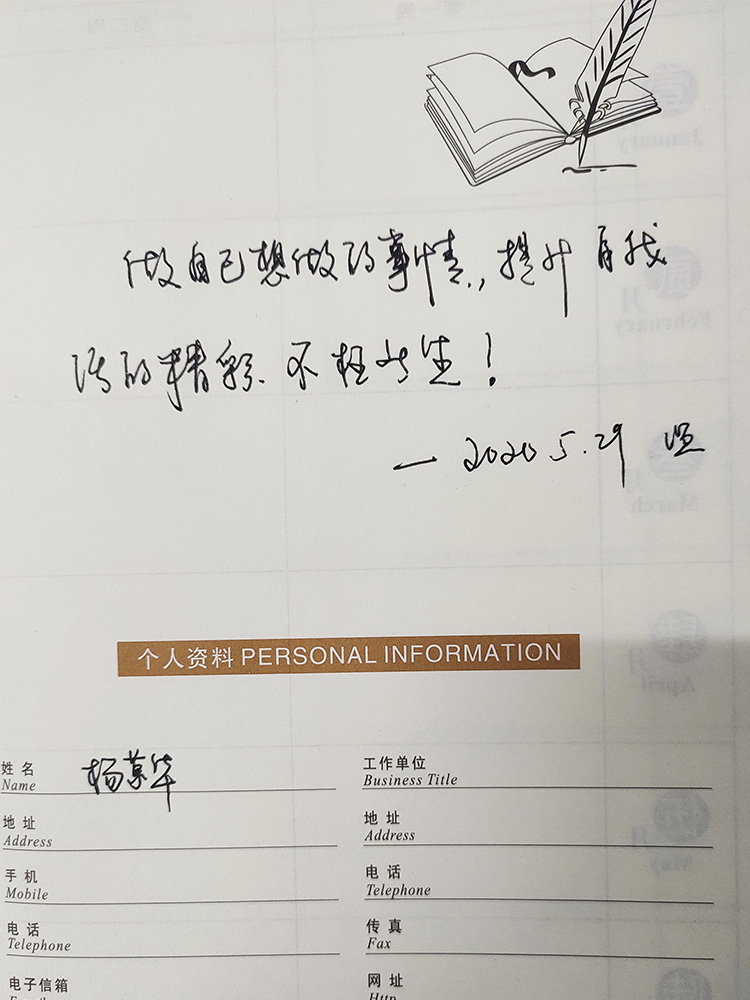 做自己想做的事情，提升自我
活的精彩.不枉此生！
— 2020.5.29
个人资料 PERSONAL INFORMATION
姓名 杨景华 工作单位
Name Business Title
地址 地址
Address Address
手机 电话
Mobile Telephone
电话 传真
Telephone Fax
电子信箱 网址
Http
January
月
February
月
March
月
April
月
May